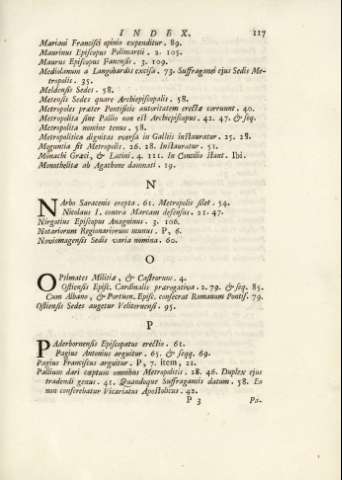 INDEX. 117
Mariani Francisci opinio expenditur. 89.
Maurinus Episcopus Polimartii. 2. 105.
Maurus Episcopus Fanensis. 3. 109.
Mediolanum a Langobardis excisa. 73. Suffraganei ejus Sedis Me-
tropolis. 35.
Meldensis Sedes. 58.
Metensis Sedes quare Archiepiscopalis. 58.
Metropoles præter Pontificis autoritatem erectæ corruunt. 40.
Metropolita sine Pallio non est Archiepiscopus. 42. 47. & seq.
Metropolita nomine tenus. 58.
Metropolitica dignitas eversa in Galliis instauratur. 25. 28.
Moguntia fit Metropolis. 26. 28. Instauratur. 51.
Monachi Græci, & Latini. 4. 111. In Concilio stant. Ibi.
Monothelitæ ab Agathone damnati. 19.
N
NArbo Saracenis erepta. 61. Metropolis silet. 54.
Nicolaus I. contra Marcam defensus. 21. 47.
Nirgotius Episcopus Anagninus. 3. 106.
Notariorum Regionariorum munus. P, 6.
Noviomagensis Sedis varia nomina. 60.
O
OPtimates Militiæ, & Castrorum. 4.
Ostiensis Episc. Cardinalis prærogativa. 2. 79. & seq. 85.
Cum Albano, & Portuen. Episc. consecrat Romanum Pontif. 79.
Ostiensis Sedes augetur Veliternensi. 95.
P
PAderbornensis Episcopatus erectio. 61.
Pagius Antonius arguitur. 65. & seqq. 69.
Pagius Franciscus arguitur. P, 7. item, 21.
Pallium dari cœptum omnibus Metropolitis. 28. 46. Duplex ejus
tradendi genus. 41. Quandoque Suffraganeis datum. 58. Eo
non conferebatur Vicariatus Apostolicus. 42.
P 3 Pa-